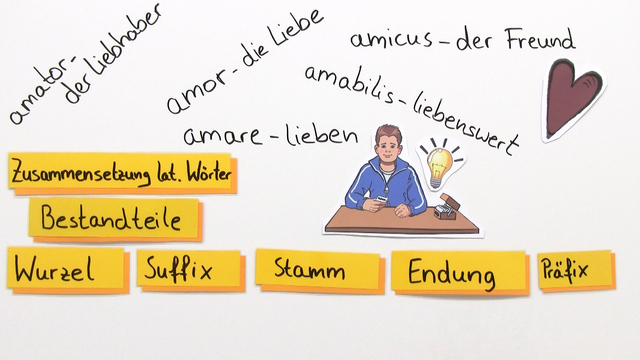 amator-
der Liebhaber
amor - die Liebe
amicus - der Freund
amabilis - liebenswert
amare - lieben
Zusammensetzung lat. Wörter
Bestandteile
Wurzel
Suffix
Stamm
Endung
Präfix